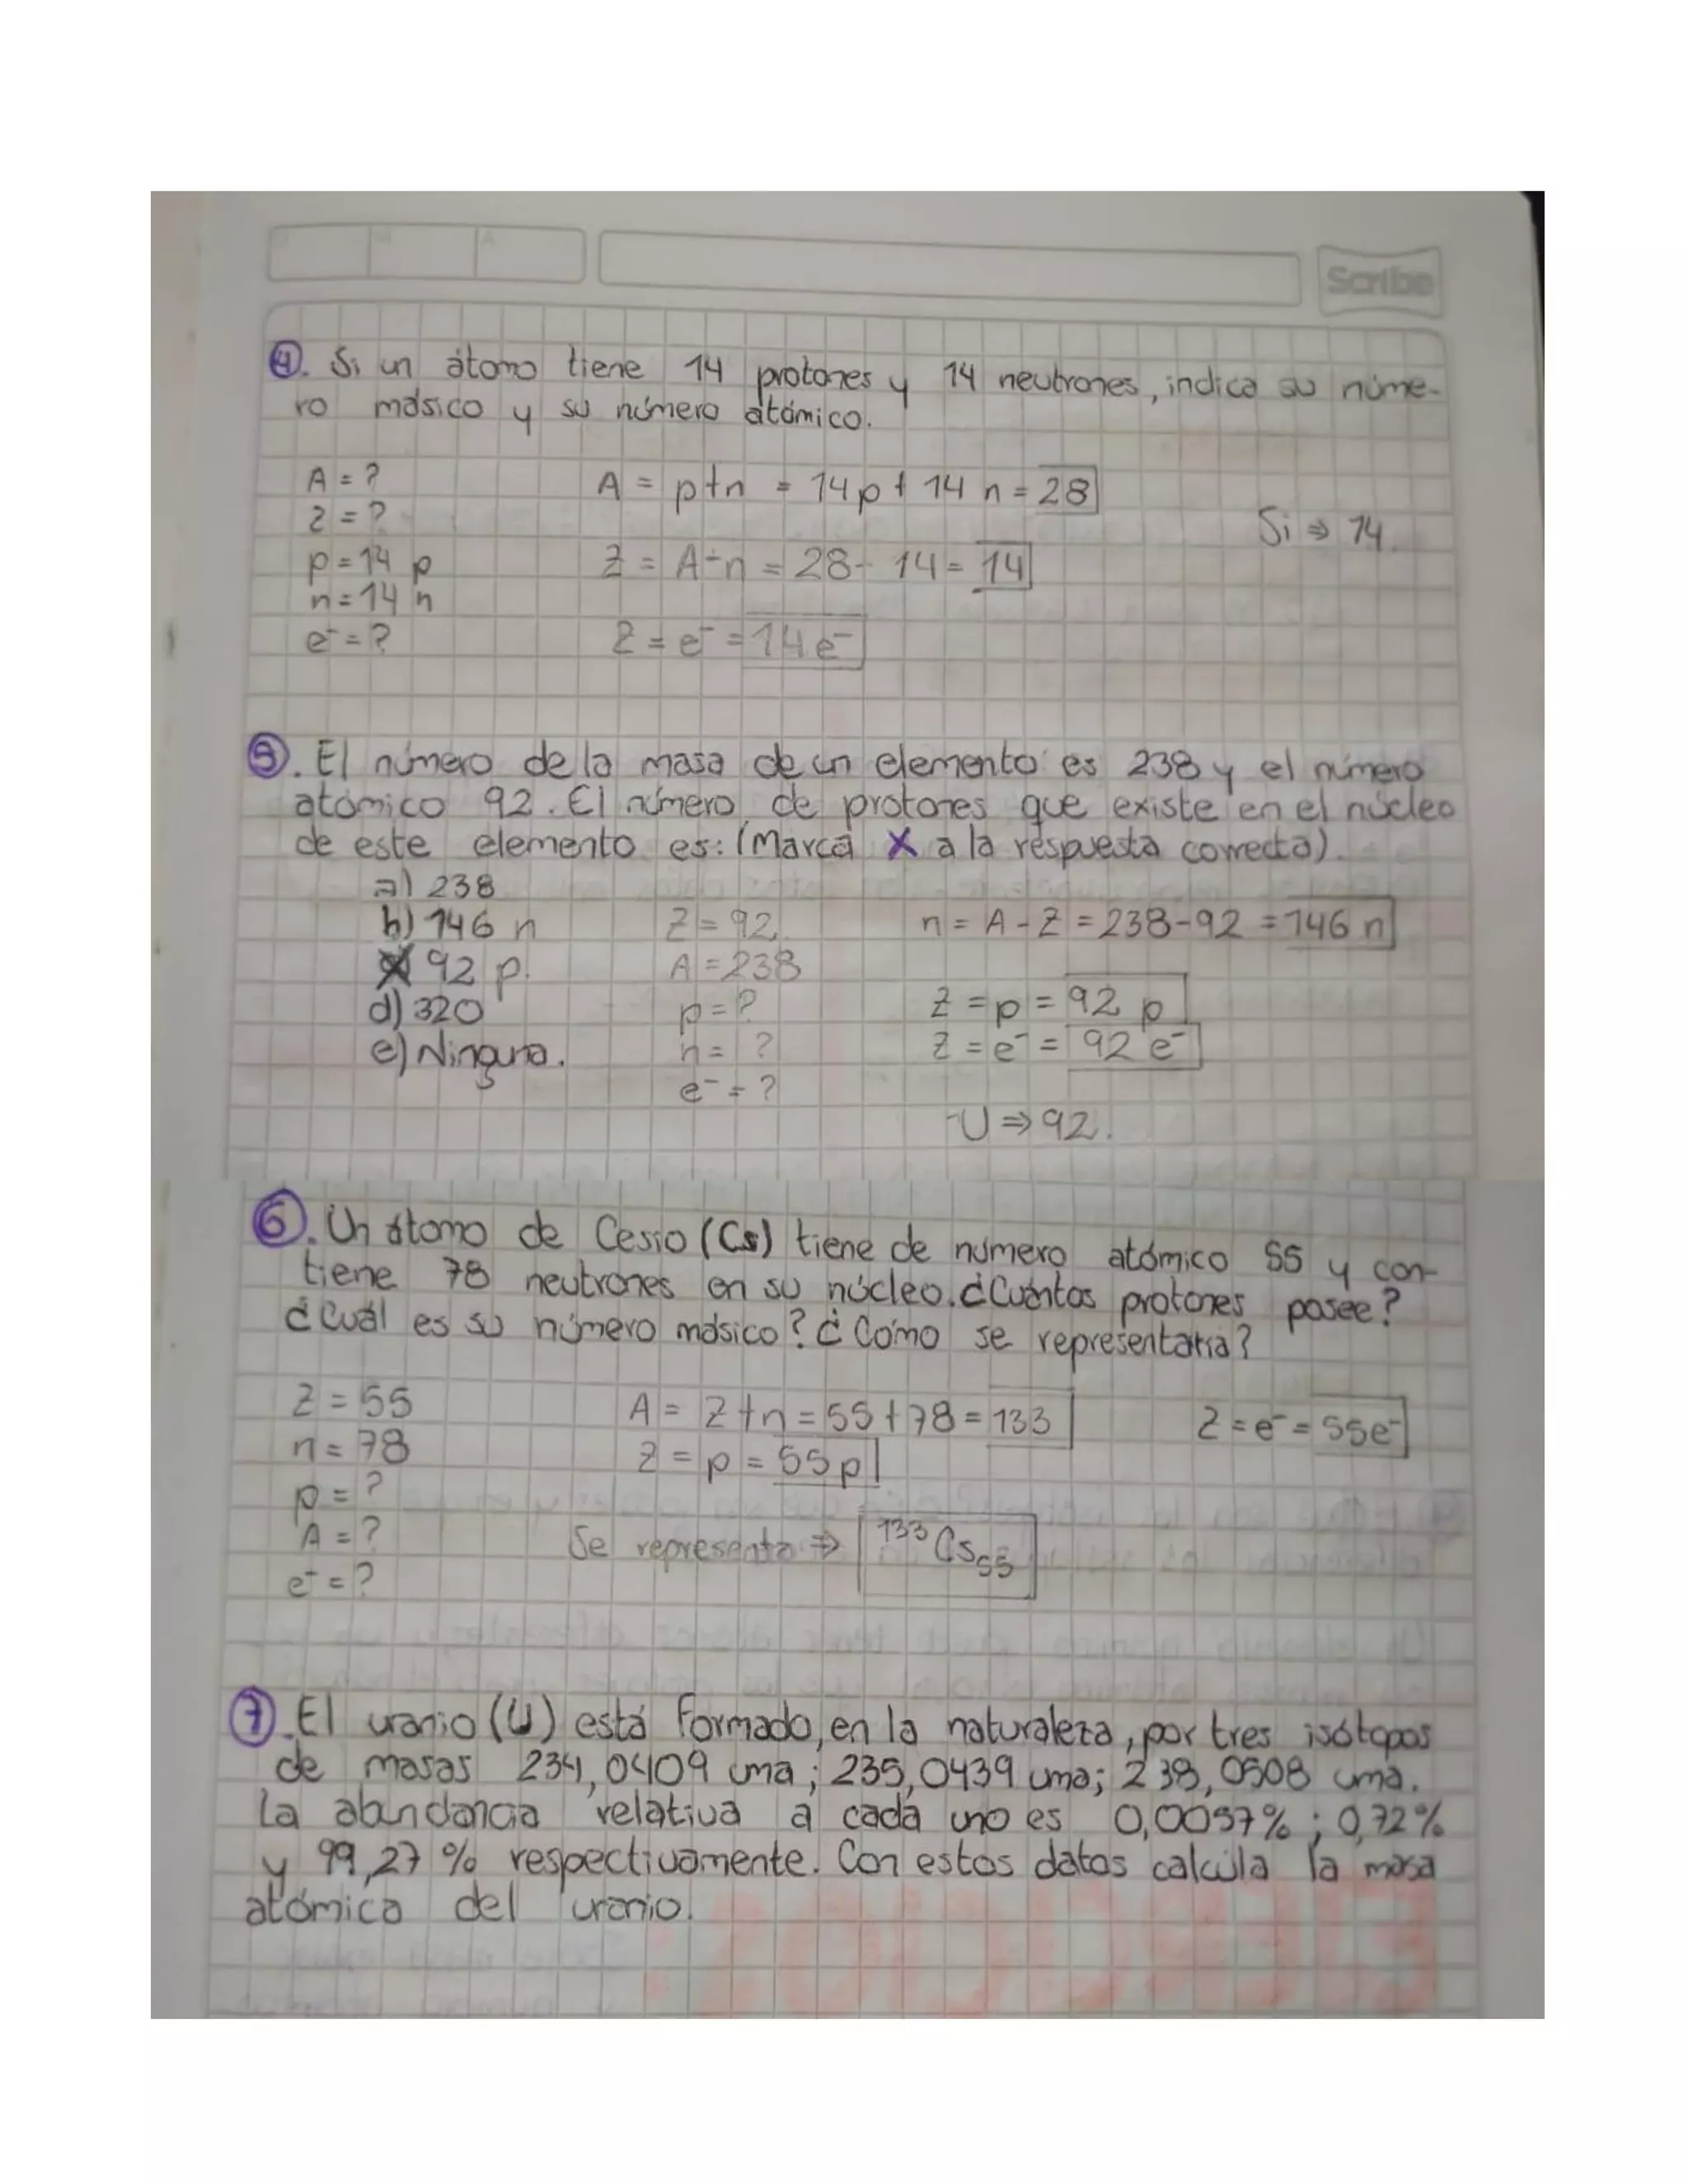 Scribe
④. Si un átomo tiene 14 protones y 14 neutrones, indica su núme-
ro másico y su número atómico.
A = ? A = p+n = 14p + 14 n = 28
Z = ? Si ⇒ 14.
p = 14 p Z = A-n = 28- 14 = 14
n = 14 n
e⁻ = ? Z = e⁻ = 14 e⁻
⑤. El número de la masa de un elemento es 238 y el número
atómico 92. El número de protones que existe en el núcleo
de este elemento es: (Marca X a la respuesta correcta).
a) 238
b) 146 n Z = 92. n = A - Z = 238-92 = 146 n
X 92 p. A = 238
d) 320 p = ? Z = p = 92 p
e) Ninguna. n = ? Z = e⁻ = 92 e⁻
e⁻ = ?
U ⇒ 92.
⑥. Un átomo de Cesio (Cs) tiene de número atómico 55 y con-
tiene 78 neutrones en su núcleo. ¿Cuántos protones posee?
¿Cuál es su número másico? ¿Cómo se representaría?
Z = 55 A = Z+n = 55+78 = 133 Z = e⁻ = 55e⁻
n = 78 Z = p = 55p
p = ?
A = ? Se representa ⇒ ¹³³Cs₅₅
e⁻ = ?
⑦. El uranio (U) está formado, en la naturaleza, por tres isótopos
de masas 234,0409 uma; 235,0439 uma; 238,0508 uma.
La abundancia relativa a cada uno es 0,0057%; 0,72%
y 99,27 % respectivamente. Con estos datos calcula la masa
atómica del uranio.